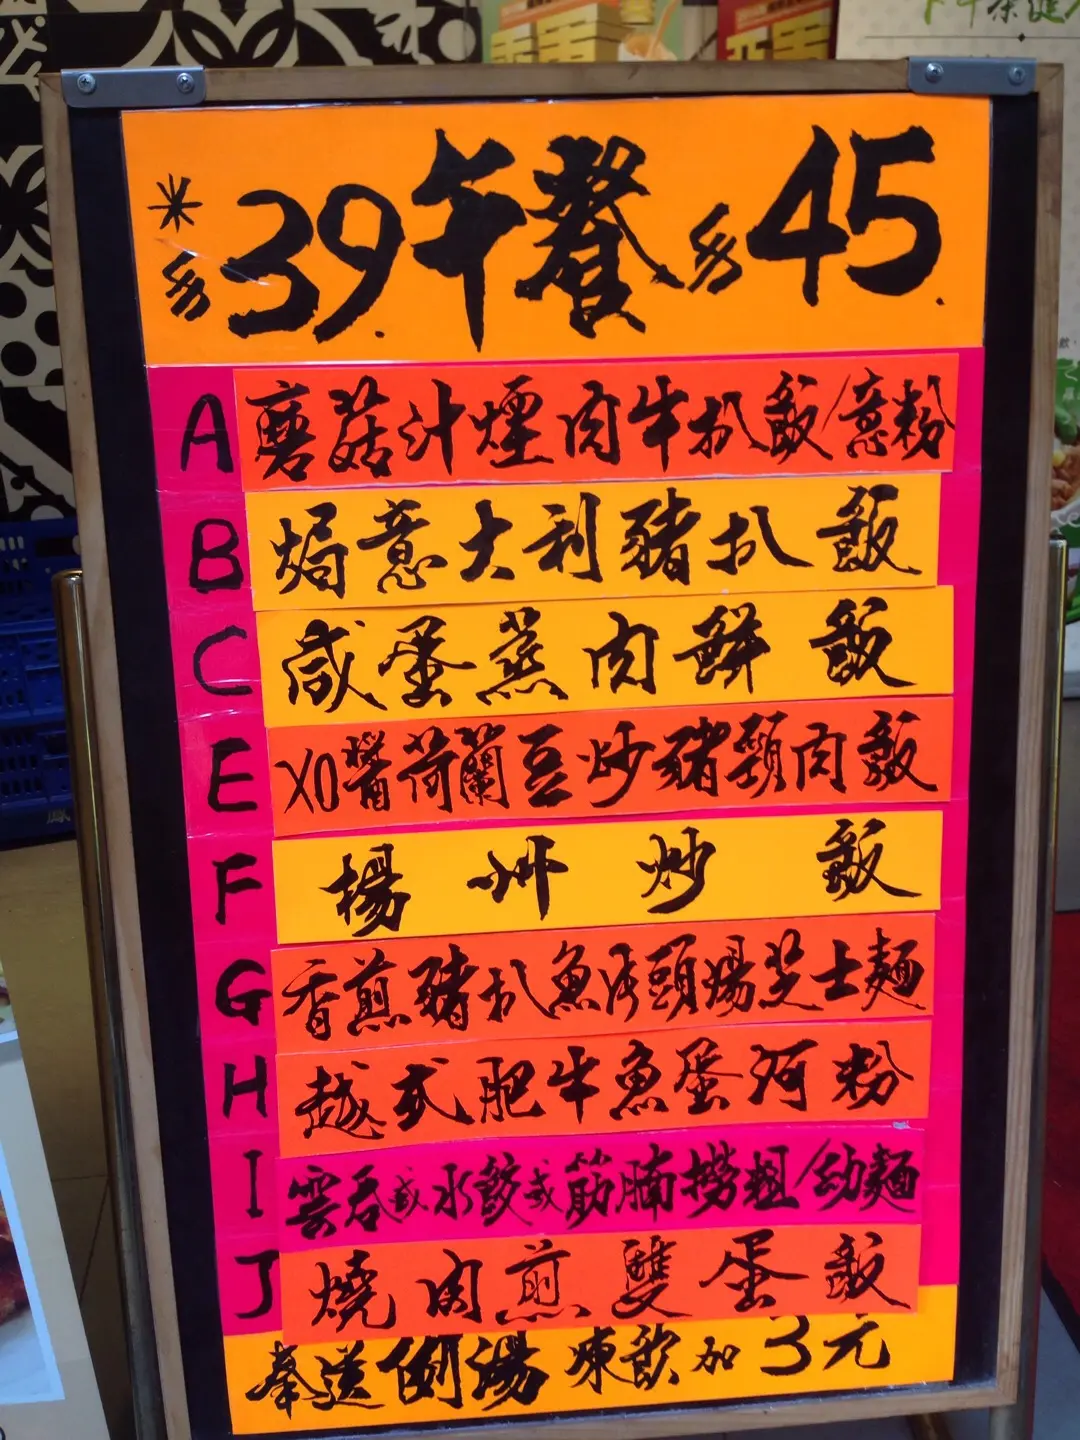 *$39. 午餐 $45.
A 磨菇汁煙肉牛扒飯/意粉
B 焗意大利豬扒飯
C 咸蛋蒸肉餅飯
E XO醬荷蘭豆炒豬頸肉飯
F 楊州炒飯
G 香煎豬扒魚片頭湯芝士麵
H 越式肥牛魚蛋河粉
I 雲吞或水餃或筋腩撈粗/幼麵
J 燒肉煎雙蛋飯
奉送例湯 凍飲加3元